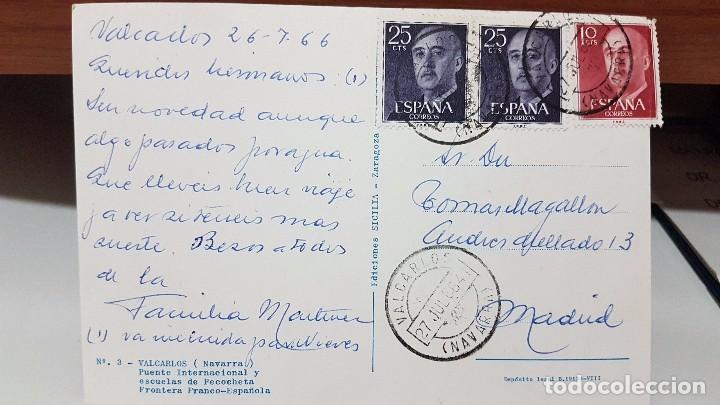 Valcarlos 26-7-66
Queridos hermanos: (1)
Sin novedad aunque
algo pasados por agua.
Que lleveis buen viaje
y a ver si teneis mas
suerte. Besos a todos
de la
Familia Martinez
(1) va incluida para Nieves
Nº. 3 - VALCARLOS (Navarra)
Puente Internacional y
escuelas de Pecocheta
Frontera Franco-Española
Ediciones SICILIA - Zaragoza
25
CTS
ESPAÑA
CORREOS
25
CTS
ESPAÑA
CORREOS
10
CTS
ESPAÑA
CORREOS
27 JUL
(NAVARRA)
Sr. Dn
Tomas Magallon
Andres Mellado 13
Madrid
VALCARLOS
27 JUL 66
(NAVARRA)
Depósito legal B.
-VIII
todocoleccion